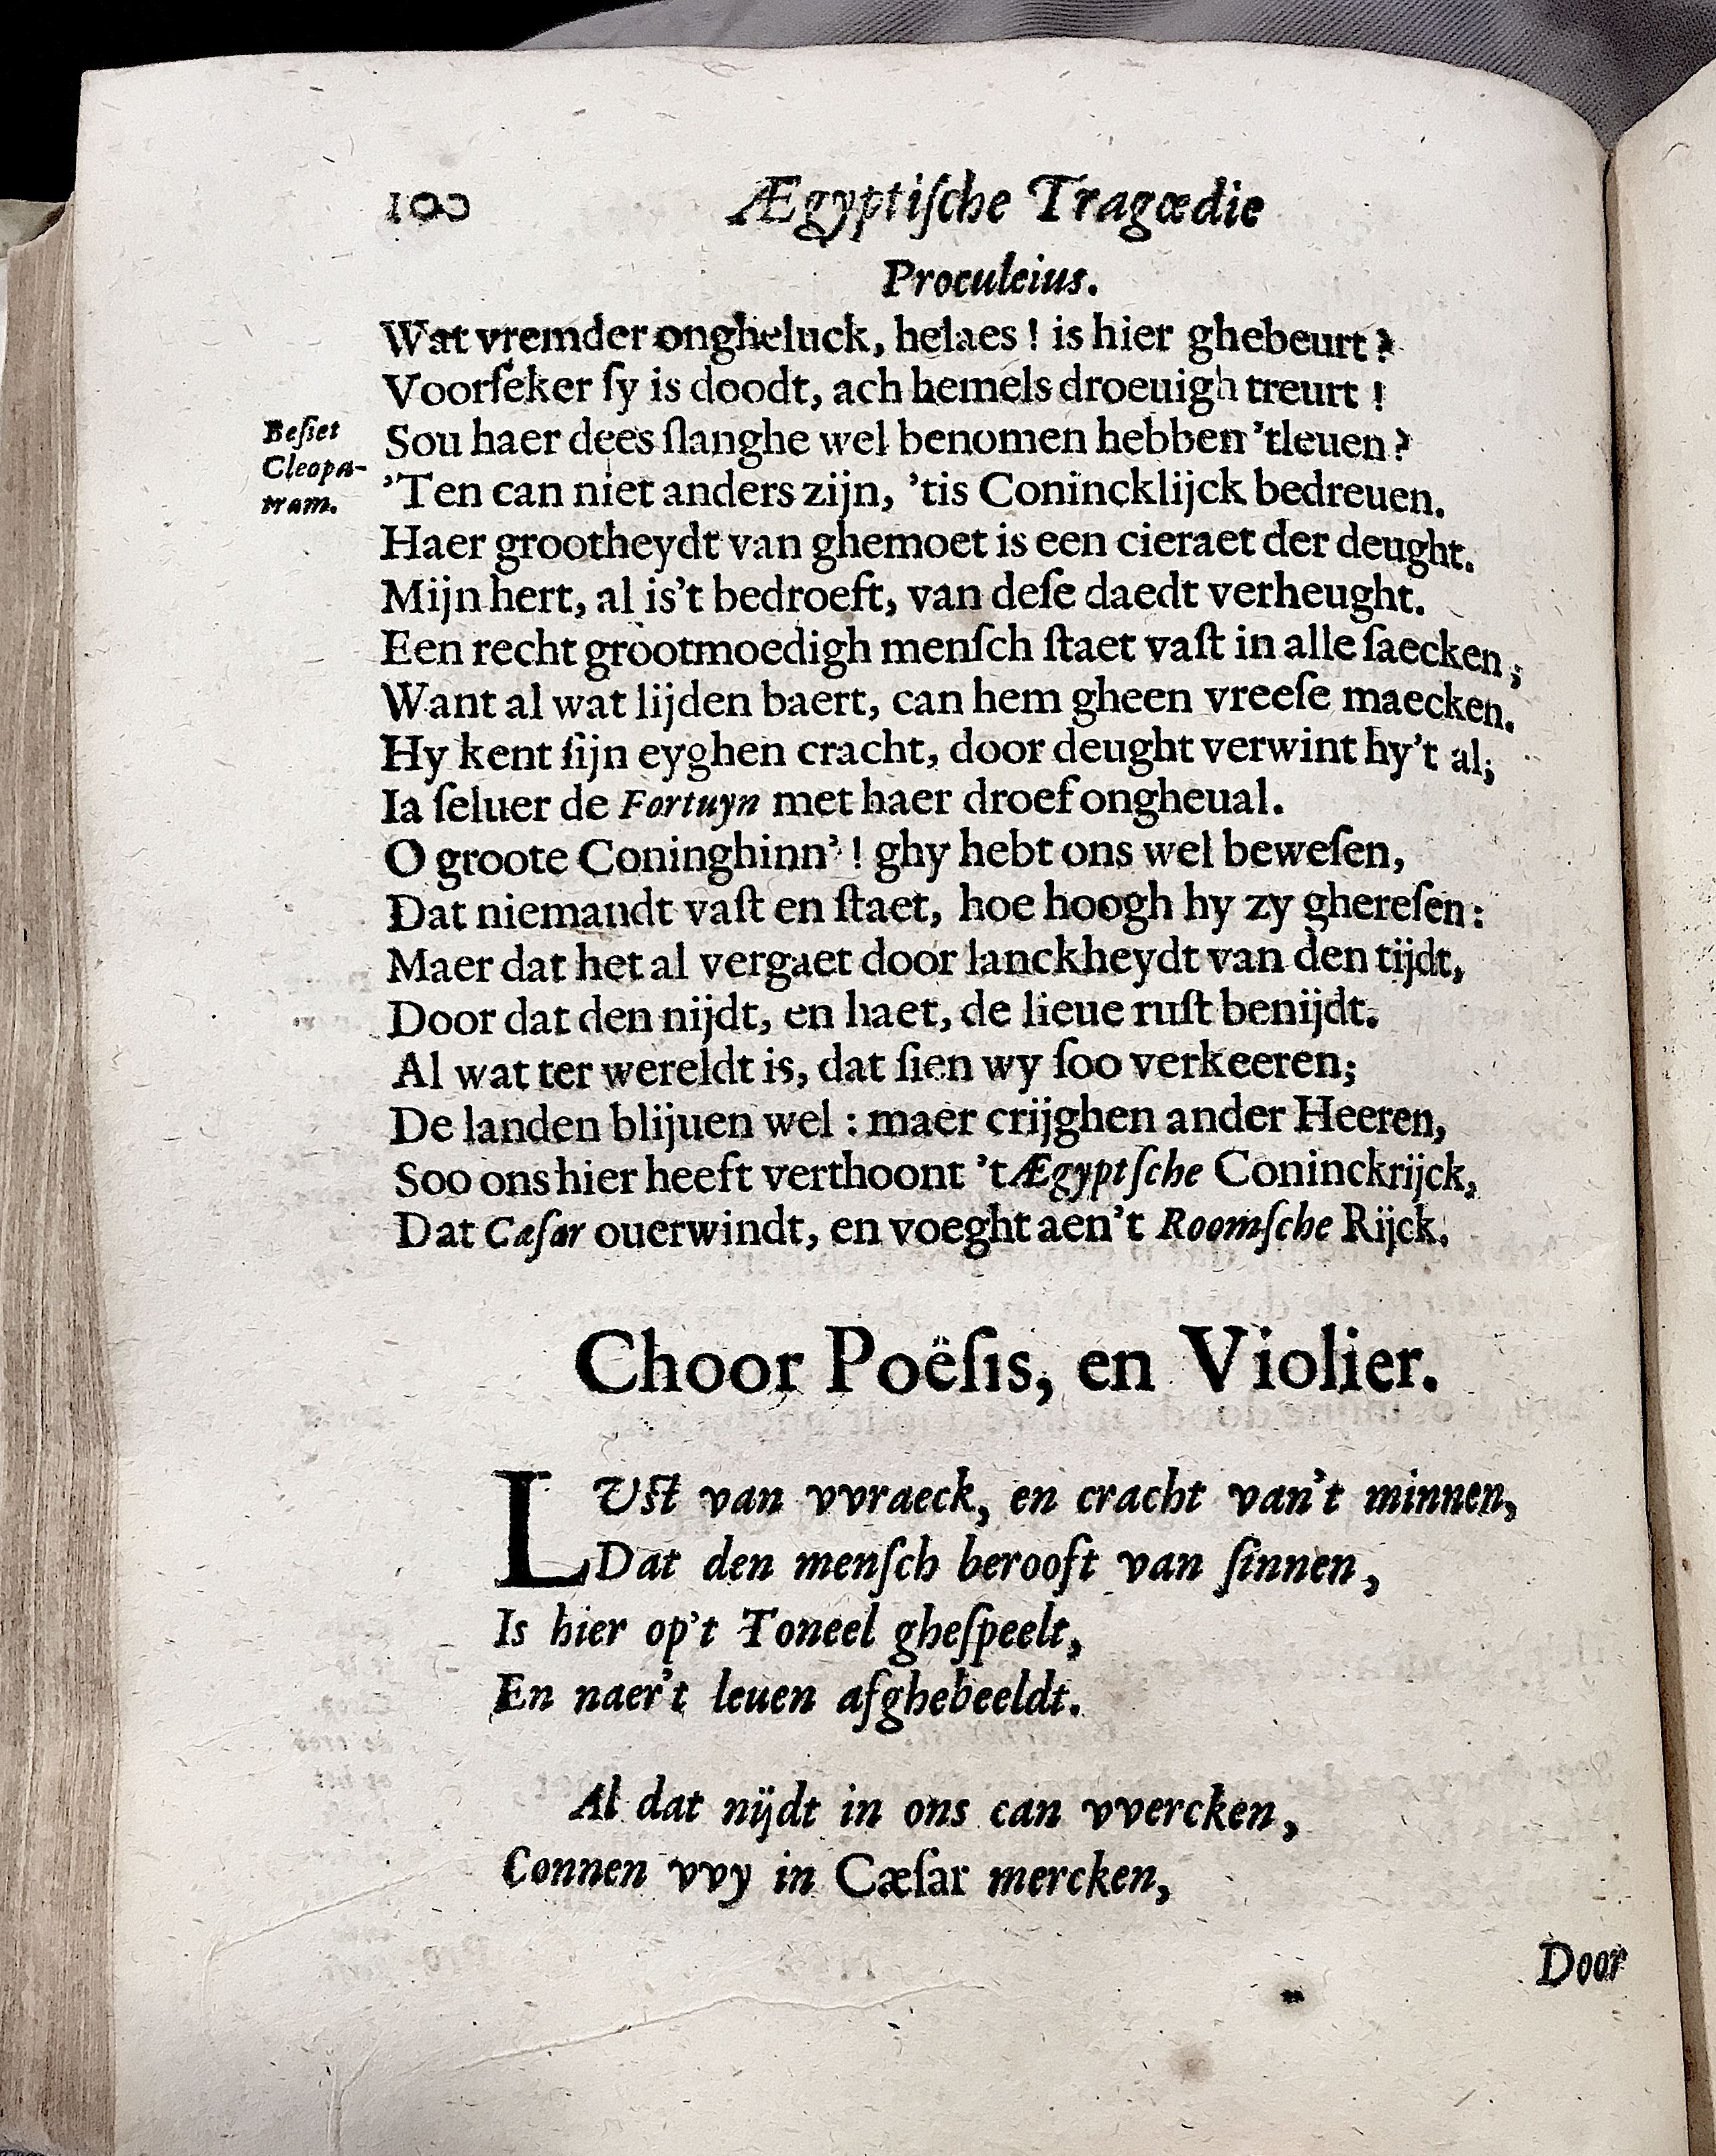 100 Ægyptiſche Tragœdie
Proculeius.
Wat vremder ongheluck, helaes ! is hier ghebeurt ?
Voorſeker ſy is doodt, ach hemels droeuigh treurt !
Beſiet
Cleopa-
tram.
Sou haer dees ſlanghe wel benomen hebben 'tleuen ?
'Ten can niet anders zijn, 'tis Conincklijck bedreuen.
Haer grootheydt van ghemoet is een cieraet der deught.
Mijn hert, al is't bedroeft, van deſe daedt verheught.
Een recht grootmoedigh menſch ſtaet vaſt in alle ſaecken ;
Want al wat lijden baert, can hem gheen vreeſe maecken.
Hy kent ſijn eyghen cracht, door deught verwint hy't al;
Ia ſeluer de Fortuyn met haer droef ongheual.
O groote Coninghinn' ! ghy hebt ons wel beweſen,
Dat niemandt vaſt en ſtaet, hoe hoogh hy zy ghereſen :
Maer dat het al vergaet door lanckheydt van den tijdt,
Door dat den nijdt, en haet, de lieue ruſt benijdt.
Al wat ter wereldt is, dat ſien wy ſoo verkeeren;
De landen blijuen wel : maer crijghen ander Heeren,
Soo ons hier heeft verthoont 't Ægyptſche Coninckrijck,
Dat Cæſar ouerwindt, en voeght aen't Roomſche Rijck.
Choor Poëſis, en Violier.
LUſt van vvraeck, en cracht van't minnen,
Dat den menſch berooft van ſinnen,
Is hier op't Toneel gheſpeelt,
En naer't leuen afghebeeldt.
Al dat nijdt in ons can vvercken,
Connen vvy in Cæſar mercken,
Door